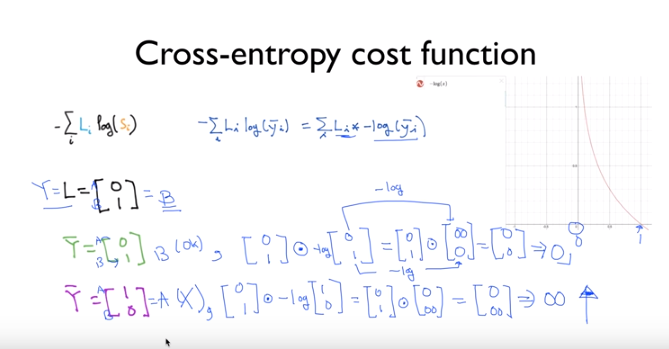 Cross-entropy cost function
-log(x)
-∑ᵢ Lᵢ log(Sᵢ)   -∑ᵢ Lᵢ log(ȳᵢ) = ∑ᵢ Lᵢ * -log(ȳᵢ)
Y = L = A B [0 1] = B
-log
Ȳ = A B [0 1] B (OK), [0 1] ⊙ -log [0 1] = [0 1] ⊙ [∞ 0] = [0 0] ⇒ 0,
-log
Ȳ = A B [1 0] = A (X), [0 1] ⊙ -log [1 0] = [0 1] ⊙ [0 ∞] = [0 ∞] ⇒ ∞ ↑
0 1